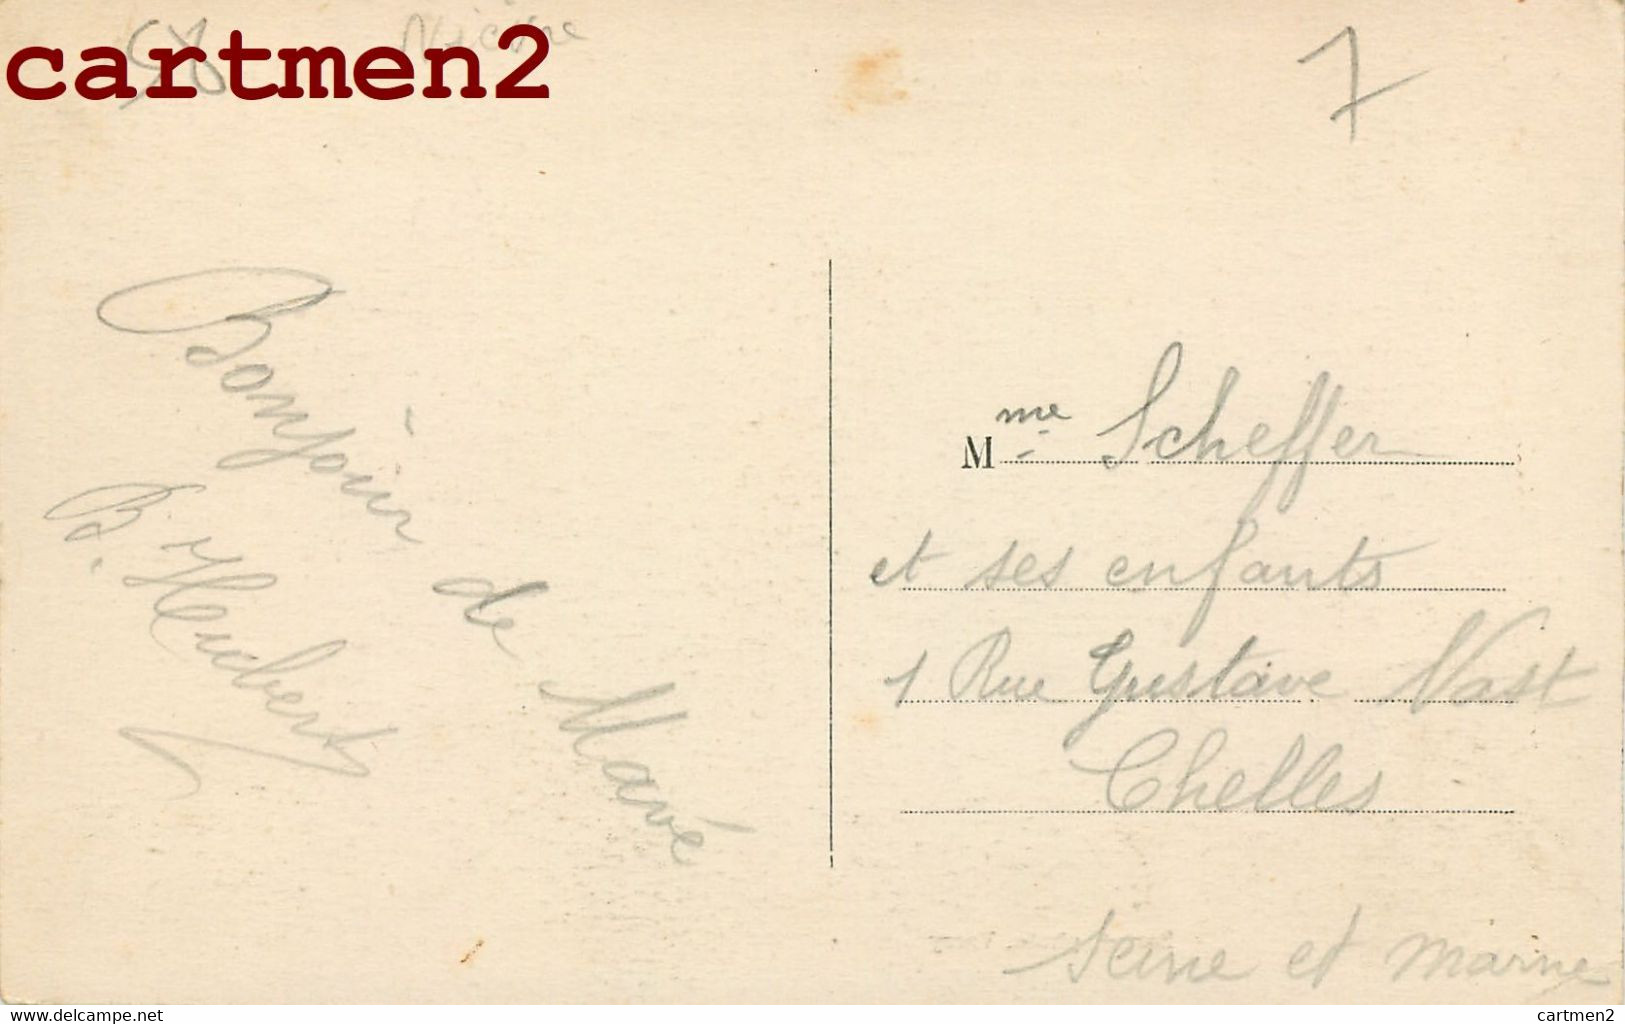 cartmen2
58 Nièvre
7
Bonjour de Mavé
B. Hubert
Mme Scheffer
et ses enfants
1 Rue Gustave Nast
Chelles
Seine et Marne
www.delcampe.net
cartmen2